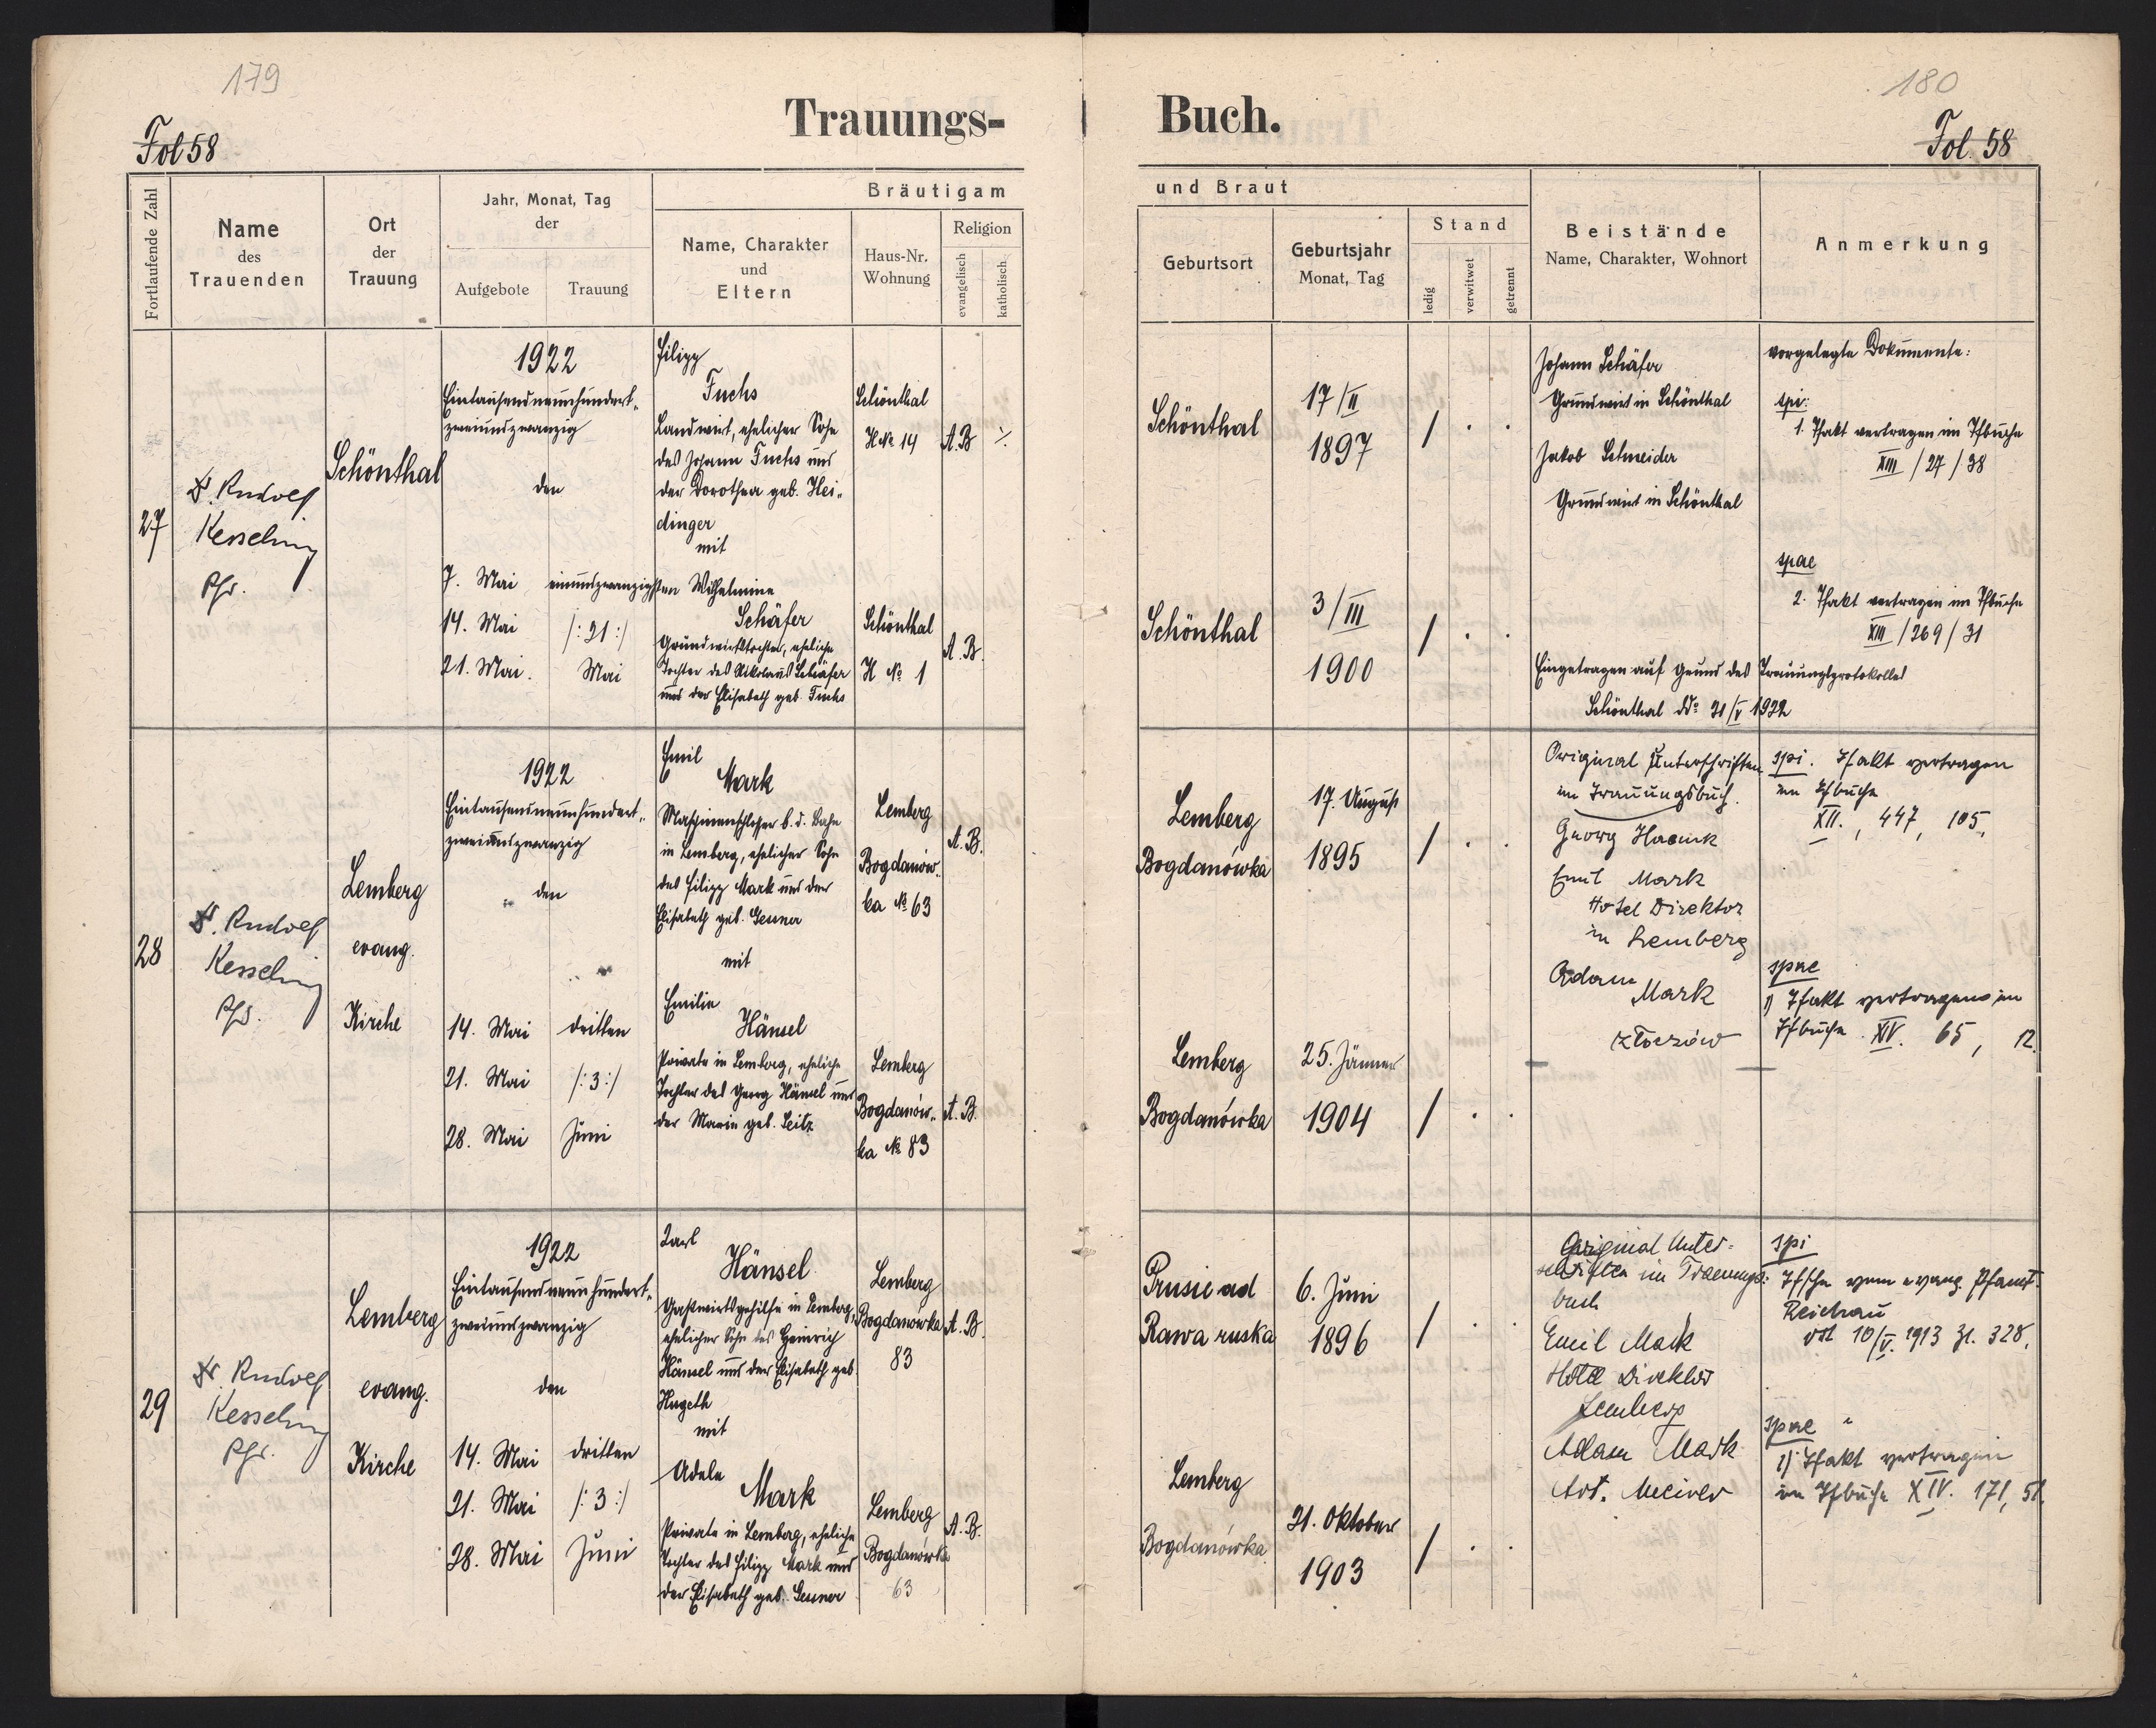 179
Fol 58
Trauungs-
Fortlaufende Zahl
Name
des
Trauenden
Ort
der
Trauung
Jahr, Monat, Tag
der
Aufgebote
Trauung
Bräutigam
Name, Charakter
und
Eltern
Haus-Nr.
Wohnung
Religion
evangelisch
katholisch
27
Rudolf
Kesselring
Pfr.
Schönthal
1922
Eintausendneunhundert-
zweiundzwanzig
den
7. Mai
14. Mai
21. Mai.
einundzwanzigsten
/:21:/
Mai
Filipp
Fuchs
Landwirt, ehelicher Sohn
des Johann Fuchs und
der Dorothea geb. Hei-
dinger
mit
Wilhelmine
Schäfer
Grundwirtstochter, eheliche
Tochter des Nikolaus Schäfer
und der Elisabeth geb. Fuchs
Schönthal
H № 14
A.B
Schönthal
H № 1
A.B.
28
Rudolf
Kesselring
Pfr.
Lemberg
evang.
Kirche
1922
Eintausendneunhundert-
zweiundzwanzig
den
14. Mai
21. Mai
28. Mai
dritten
/:3:/
Juni
Emil
Mark
Maschinenschlosser b. d. Bahn
in Lemberg, ehelicher Sohn
des Filipp Mark und der
Elisabeth geb. Gesner
mit
Emilie
Hänsel
Private in Lemberg, eheliche
Tochter des Georg Hänsel und
der Maria geb. Seitz
Lemberg
Bogdanów-
ka № 63
A.B.
Lemberg
Bogdanów-
ka № 83
A.B.
29
Rudolf
Kesselring
Pfr.
Lemberg
evang.
Kirche
1922
Eintausendneunhundert-
zweiundzwanzig
den
14. Mai
21. Mai
28. Mai
dritten
/:3:/
Juni
Karl
Hänsel
Gastwirtsgehilfe in Lemberg,
ehelicher Sohn des Heinrich
Hänsel und der Elisabeth geb.
Hugeth
mit
Adele
Mark
Private in Lemberg, eheliche
Tochter des Filipp Mark und
der Elisabeth geb. Gesner
Lemberg
Bogdanówka
83
A.B.
Lemberg
Bogdanówka
63
A.B.
180
Fol. 58
Buch.
und Braut
Geburtsort
Geburtsjahr
Monat, Tag
Stand
ledig
verwitwet
getrennt
Beistände
Name, Charakter, Wohnort
Anmerkung
Schönthal
17/II
1897
/
Johann Schäfer
Grundwirt in Schönthal
Jakob Schneider
Grundwirt in Schönthal
vorgelegte Dokumente:
spi:
1. Ifakt vertragen im Ifbuche
XIII /27/ 38
Schönthal
3/III
1900
/
spae
2. Ifakt vertragen im Ifbuche
XIII /269/31
Eingetragen auf Grund des Trauungsprotokolles
Schönthal dd° 21/V 1922
Lemberg
Bogdanówka
17. August
1895
/
Original Unterschriften
im Trauungsbuch.
Georg
Emil Mark
Hotel Direktor
in Lemberg
Adam
Mark
Złoczów
spi. Ifakt vertragen
im Ifbuche
XII., 447, 105,
Lemberg
Bogdanówka
25. Jänner
1904
/
spae
1) Ifakt vertragen im
Ifbuche XIV. 65, 12.
Prusie ad
Rawa ruska
6. Juni
1896
/
Original Unter-
schriften im Trauungs-
buch
Emil Mark
Hotel Direktor
Lemberg
Adam Mark
spi
Ifsche vom evang. Pfamt.
Reichau
vol 10/V. 1913 Zl. 328,
Lemberg
Bogdanówka
21. Oktober
1903
/
spae
1) Ifakt vertragen
im Ifbuche XIV. 171, 51.